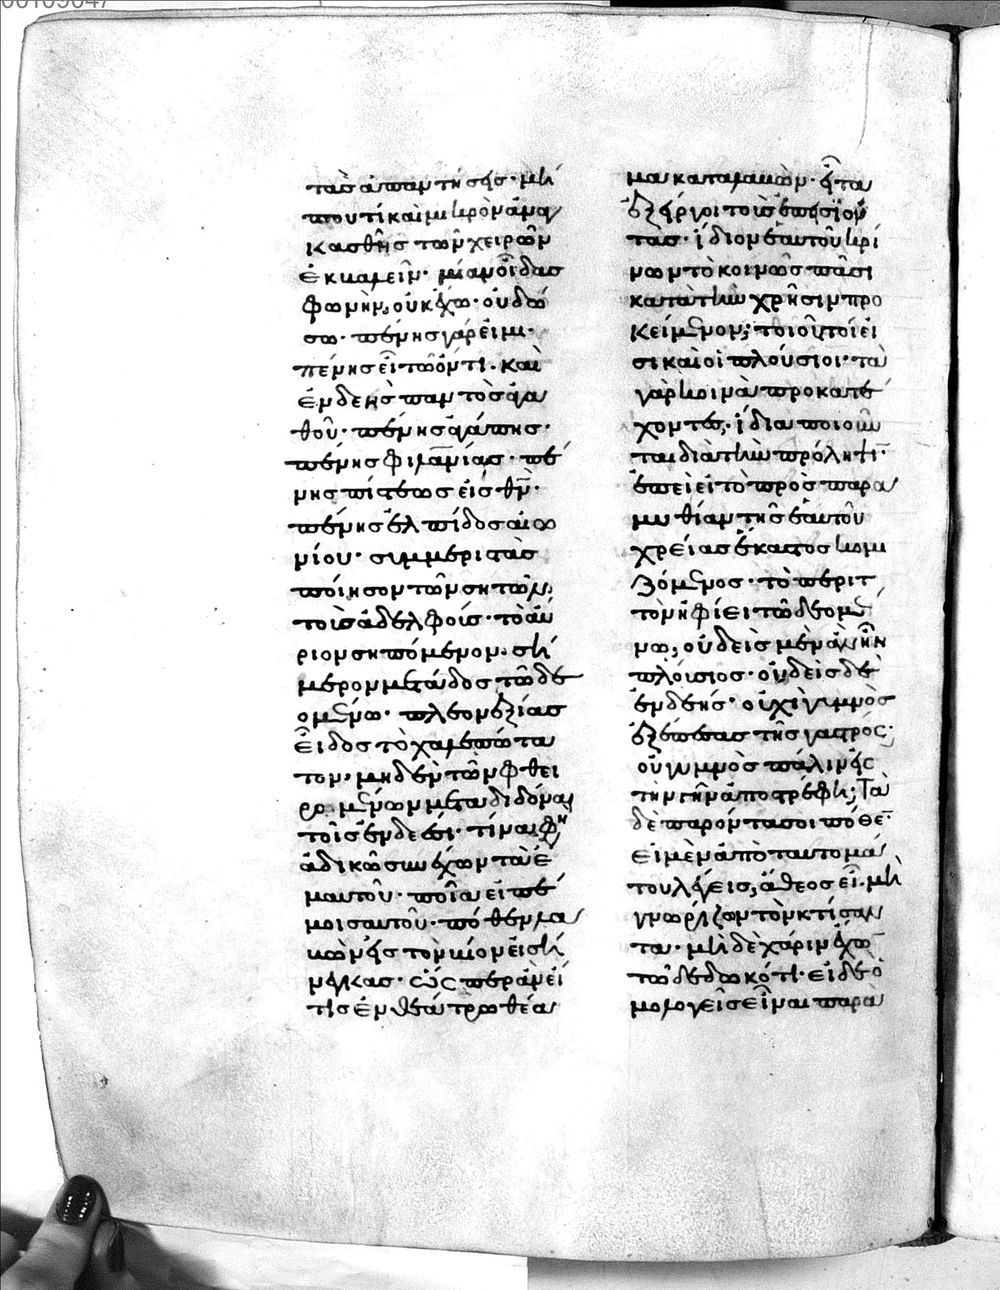 τὰς ἀπαντήσεις· μή
που τὶ καὶ μικρὸν ἀναγ
κασθῆς τῶν χειρῶν
ἐκβαλεῖν· μίαν οἶδας
φωνὴν, οὐκ ἔχω· οὐ δώ
σω· πένης γάρ εἰμι·
πένης εἶ τῷ ὄντι. καὶ
ἐνδεὴς παντὸς ἀγα
θοῦ· πένης ἀγάπης·
πένης φιλανίας· πέ
νης πίστεως εἰς θν·
πένης ἐλπίδος αἰω
νίου· συμμεριστὰς
ποίησον τῶν σητῶν
τοῖς ἀδελφοῖς· τὸ αὔ
ριον σηπόμενον. σή
μερον μετάδος τῷ δε
ομένω· πλεονεξίας
εἶδος τὸ χαλεπώτα
τον, μηδὲ τῶν φθει
ρομένων μεταδιδόναι
τοῖς ἐνδεέσι· τίνα φη
ἀδικῶ συνέχων τὰ ἐ
μαυτοῦ· ποῖα εἰπέ
μοι σαυτοῦ· πόθεν λα
βὼν εἰς τὸν βίον εἰσή
νεγκας· ὥσπερ ἂν εἴ
τις ἐν θεάτρω θέαν
μα καταλαβὼν· εἶτα
ἐξείργοι τοὺς ἐπεισϊόν
τας· ἴδιον ἑαυτοῦ κρί
νων τὸ κοινῶς πᾶσι
κατὰ τὴν χρῆσιν προ
κείμενον; τοιοῦτοί εἰ
σι καὶ οἱ πλούσιοι· τὰ
γὰρ κοινὰ προκατέ
χοντες, ἴδια ποιοῦν
ται διὰ τὴν πρόληψι·
ἐπεὶ εἰ τὸ πρὸς παρα
μυθίαν τῆς ἑαυτοῦ
χρείας ἕκαστος κομι
ζόμενος· τὸ περιτ
τὸν ἠφίει τῷ δεομέ
νω, οὐδεὶς μὲν ἂν ἦν
πλούσιος· οὐδεὶς δὲ
ἐνδεής· οὐχὶ γυμνὸς
ἐξέπεσας τῆς γαστρός·
οὐ γυμνὸς πάλιν εἰς
τὴν γῆν ἀποστρέφη; Τὰ
δὲ παρόντα σοι πόθε·
εἰ μὲν ἀπὸ ταυτομά
του λέγεις, ἄθεος εἶ. μὴ
γνωρίζων τὸν κτίσαν
τα· μὴ δὲ χάριν ἔχων
τῷ δεδωκότι. εἰ δὲ ὁ
μολογεῖς εἶναι παρὰ